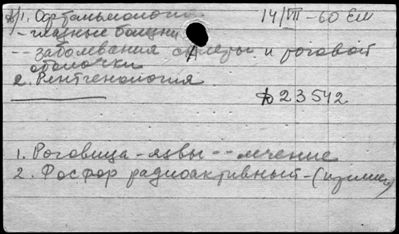 1. Офтальмология 14/VII-60 ЕМ
- глазные болезни
-- заболевания склеры и роговой
оболочки
2. Рентгенология
23542
1. Роговица - язвы -- лечение
2. Фосфор радиоактивный -